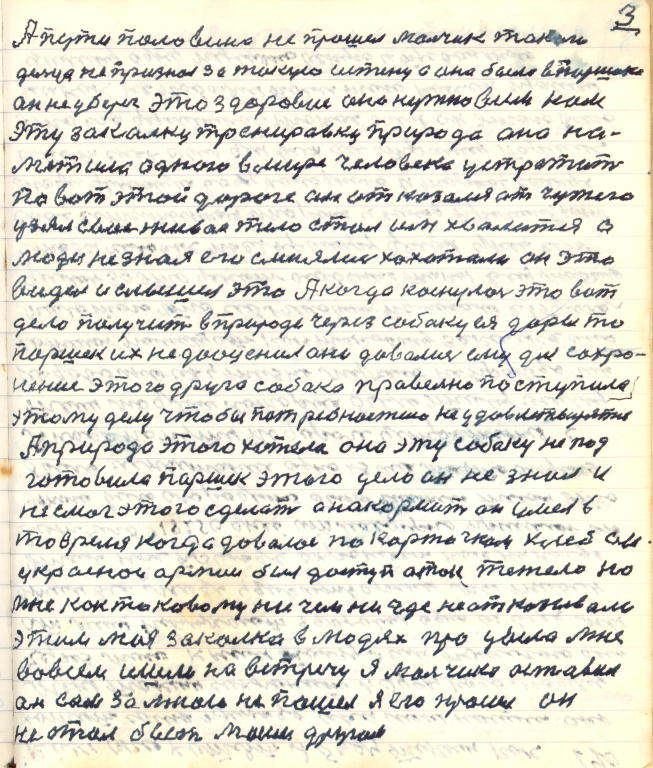 3
А пути половина не прошел мальчик такого
дельца не признал за такую истину а она была в Паршеке
он не уберег это здоровие оно нужно всем нам
эту закалку тренировку природа она на-
метила одного в мире человека устратить
по вот этой дороге он отказался от чужего
узял свое живое тело стал им хвалится а
люди не зная его смиялися хохотали он это
видел и слышел это А когда коснулся это вот
дело получить в природе через собаку ея дары то
Паршек их недооценил они давалися ему для сохро-
нение этого друга собака правельно поступила
этому делу чтобы потребностию не удовлетворятся
А природа этого хотела она эту собаку не под
готовила Паршек этого дела он не знал и
не смог этого сделать а накормить он имел в
то время когда довалося по карточкам хлеб
у красной армии был доступ тежело но
мне как таковому ни чем ни где не отказывали
этим моя закалка в людях про мне
вовсем имели на встречу Я мальчика оставил
он сам за мною не пошел я его просил он
не стал быть моим другом